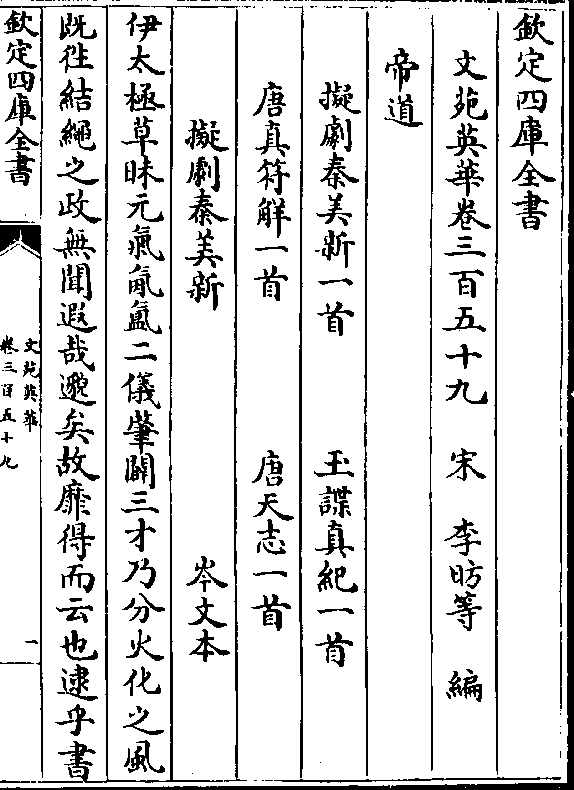 欽定四庫全書
文苑英華卷三百五十九 宋 李昉等 編
帝道
擬劇秦美新一首 玉諜真紀一首
唐真符解一首 唐天志一首
擬劇秦美新 岑文本
伊太極草昧元氣氤氳二儀肇闢三才乃分火化之風
既徃結繩之政無聞遐哉邈矣故靡得而云也逮乎書
欽定四庫全書
文苑英華
卷三百五十九
一